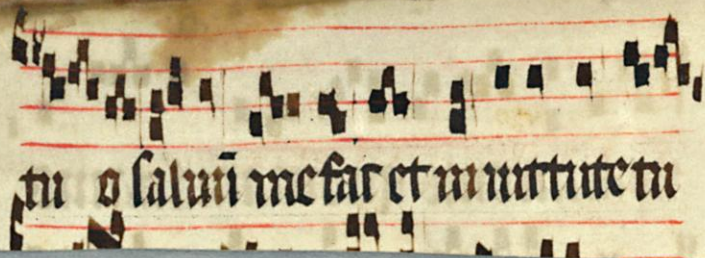 tu o saluū me fac et in uirtute tu